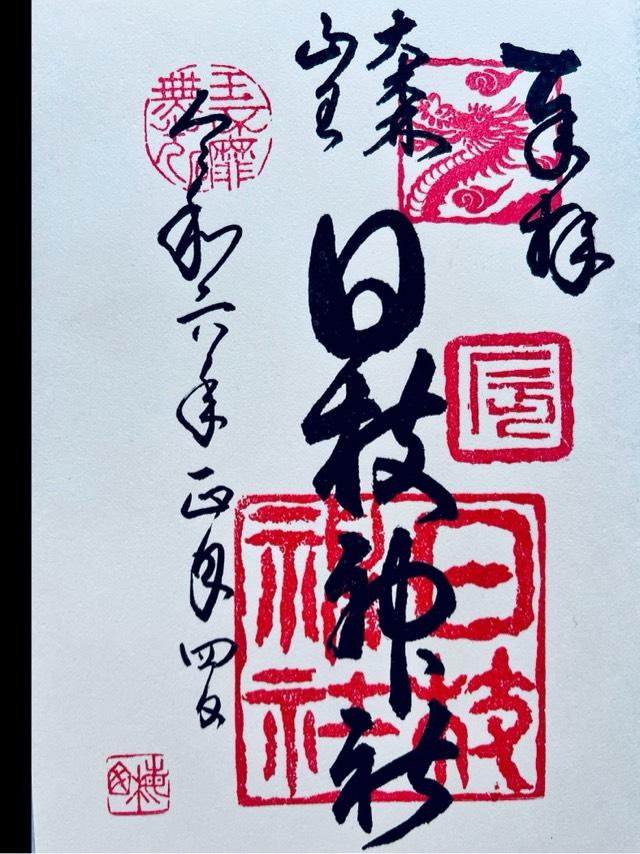 奉拝
大森
山王
日枝神社
日枝
神社
令和六年正月四日